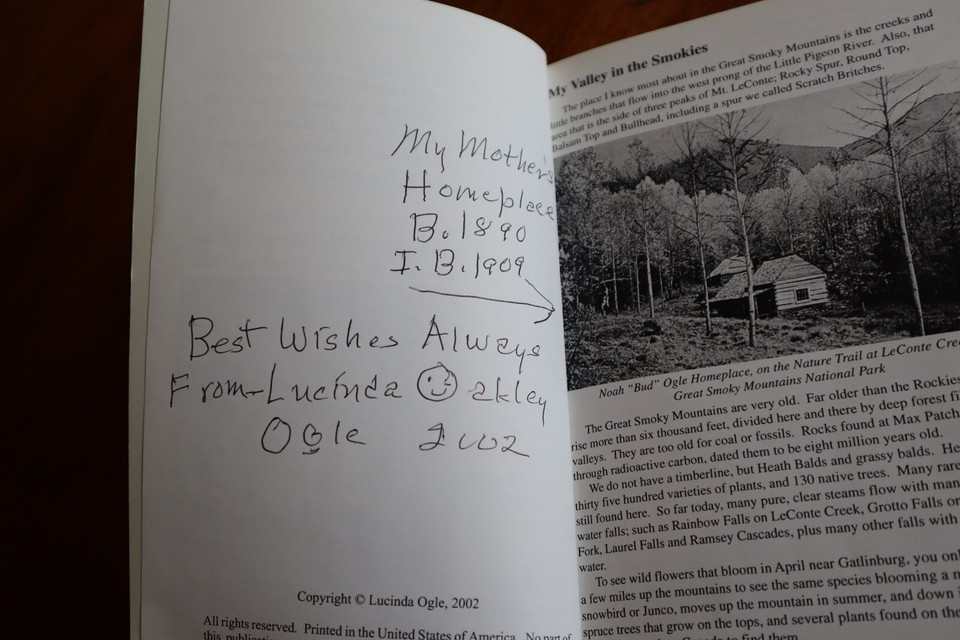 My Mother's
Homeplace
B. 1890
I. B. 1909
Best Wishes Always
From-Lucinda Oakley
Ogle 2002
Copyright © Lucinda Ogle, 2002
All rights reserved. Printed in the United States of America. No part of
this
My Valley in the Smokies
The place I know most about in the Great Smoky Mountains is the creeks and
little branches that flow into the west prong of the Little Pigeon River. Also, that
area that is the side of three peaks of Mt. LeConte; Rocky Spur, Round Top,
Balsam Top and Bullhead, including a spur we called Scratch Britches.
Noah "Bud" Ogle Homeplace, on the Nature Trail at LeConte Cre
Great Smoky Mountains National Park
The Great Smoky Mountains are very old. Far older than the Rockies
rise more than six thousand feet, divided here and there by deep forest fi
valleys. They are too old for coal or fossils. Rocks found at Max Patch
through radioactive carbon, dated them to be eight million years old.
We do not have a timberline, but Heath Balds and grassy balds. He
thirty five hundred varieties of plants, and 130 native trees. Many rare
still found here. So far today, many pure, clear steams flow with man
water falls; such as Rainbow Falls on LeConte Creek, Grotto Falls on
Fork, Laurel Falls and Ramsey Cascades, plus many other falls with
water.
To see wild flowers that bloom in April near Gatlinburg, you onl
a few miles up the mountains to see the same species blooming a m
snowbird or Junco, moves up the mountain in summer, and down i
spruce trees that grow on the tops, and several plants found on the
to find them